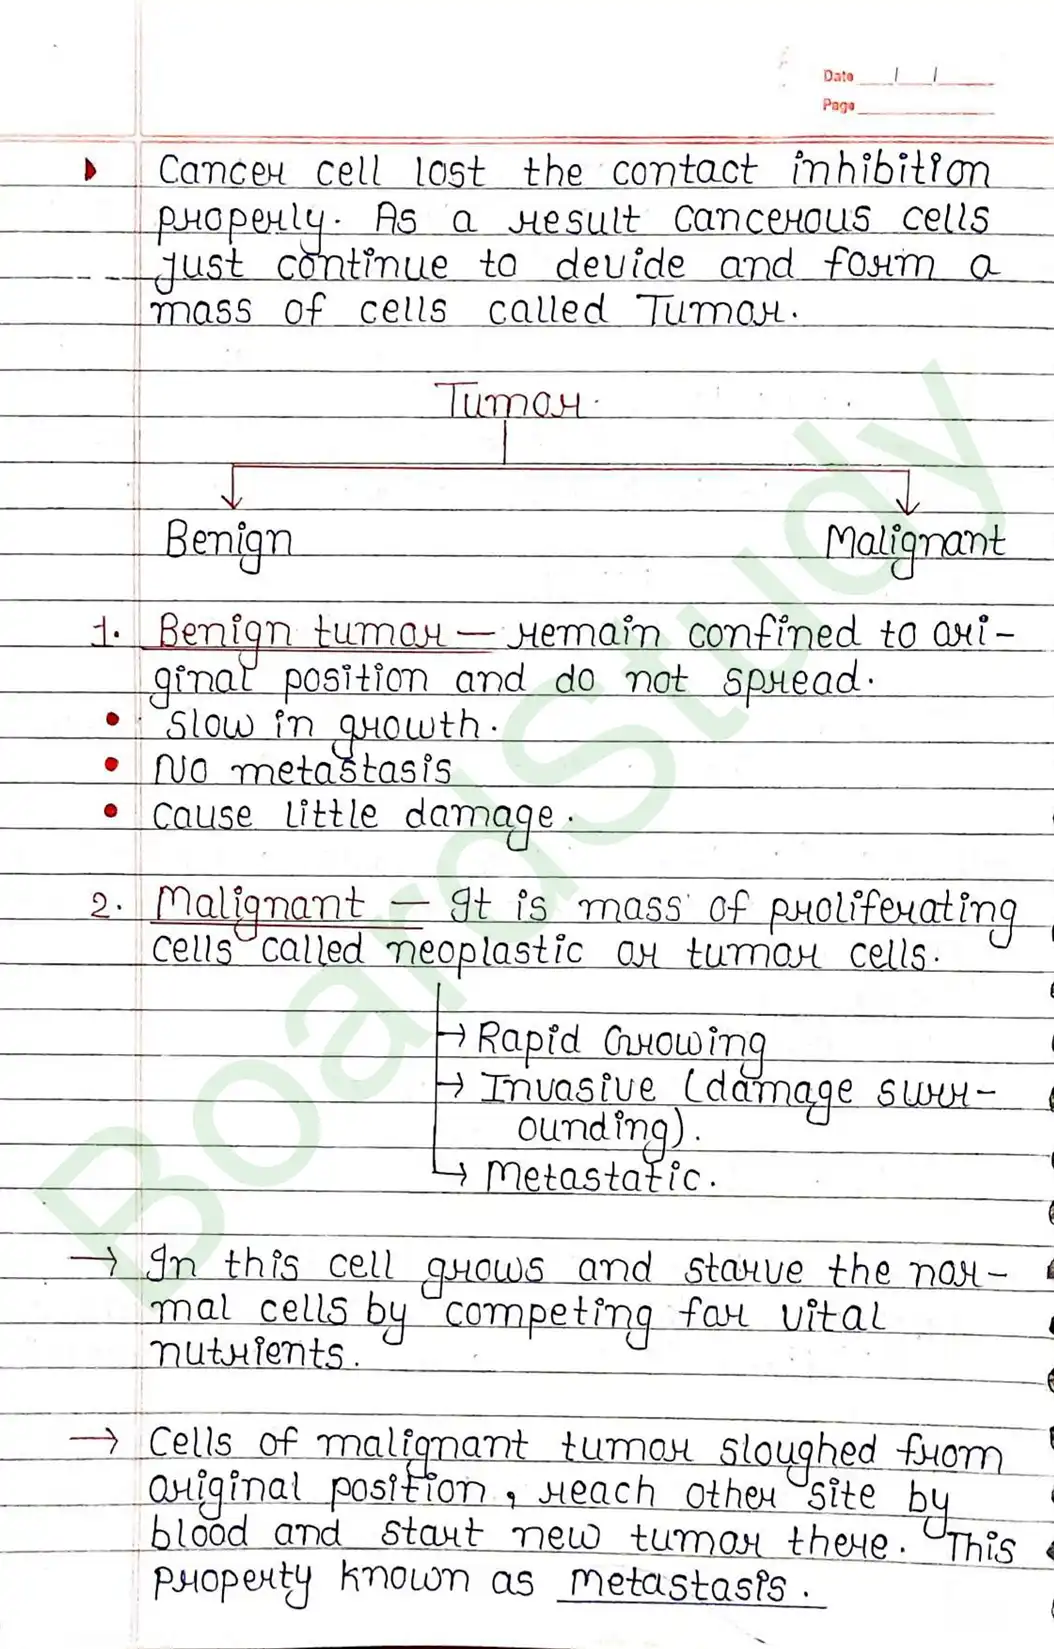 Date / /
Page
Cancer cell lost the contact inhibition
properly. As a result cancerous cells
just continue to devide and form a
mass of cells called Tumor.
Tumor.
Benign Malignant
1. Benign tumor — remain confined to ori-
ginal position and do not spread.
• Slow in growth.
• No metastasis
• cause little damage.
2. Malignant — It is mass of proliferating
cells called neoplastic or tumor cells.
→ Rapid Growing
→ Invasive (damage surr-
ounding).
→ Metastatic.
→ In this cell grows and starve the nor-
mal cells by competing for vital
nutrients.
→ Cells of malignant tumor sloughed from
original position, reach other site by
blood and start new tumor there. This
property known as metastasis.
BoardStudy